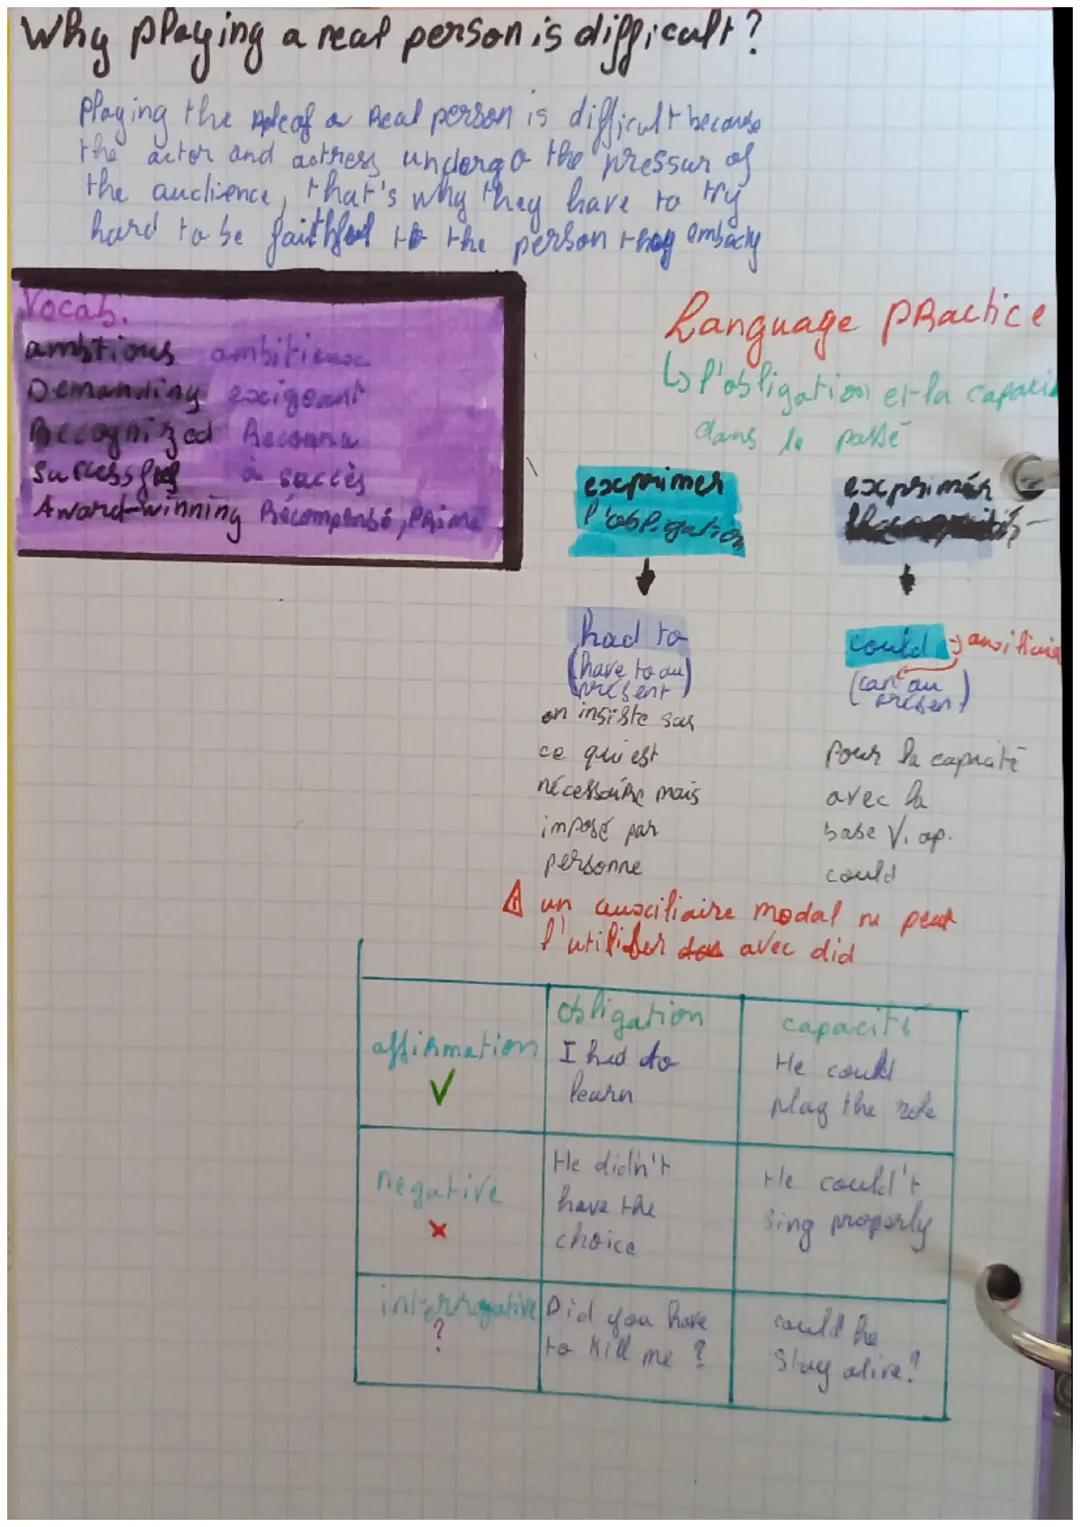 Why playing a real person is difficult?
Playing the role of a Real person is difficult because
the actor and actress undergo the pressur of
the audience, that's why they have to try
hard to be faithful to the person they embady
Vocab.
ambtious ambitieuse
Demanding exigeant
Recognized Reconnu
Successful à succès
Award-winning Récompensé, PRimé
Language PRactice
↳ l'obligation et la capaci
dans le passé
exprimer
l'obligation
↓
had to
(have to au
présent)
on insiste sur
ce qui est
nécessaiRe mais
imposé par
personne
exprimer
↓
could → auxiliai
(can au
présent)
Pour la capacité
avec la
base V. op.
could
⚠ un auxiliaire modal ne peut
l'utiliser avec did
obligation capacité
affiRmation I had to He could
✓ learn play the role
negative He didn't He couldn't
✗ have the sing properly
choice
interrogative Did you have could he
? to Kill me ? Stay alive?